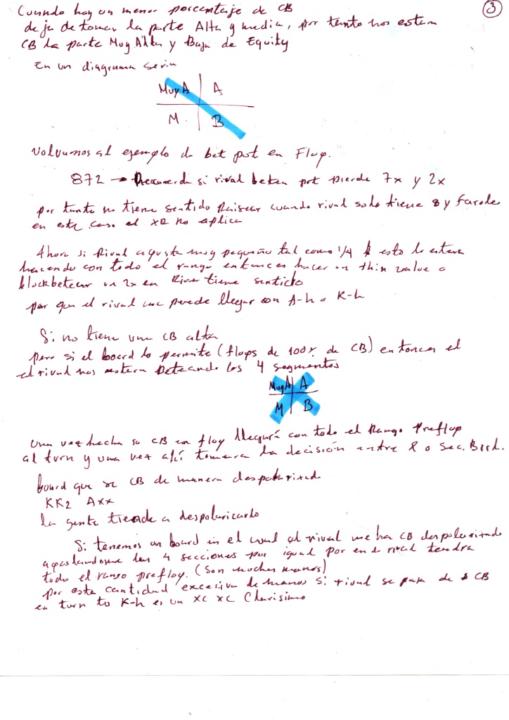 3
Cuando hay un menor porcentaje de CB
deja de tomar la parte Alta y media, por tanto nos estan
CB la parte Muy Alta y Baja de Equity
En un diagrama seria
Muy A | A
M | B
Volvamos al ejemplo de bet pot en Flop.
872 → Recuerda si rival betea pot pierde 7x y 2x
por tanto no tiene sentido Raisear cuando rival solo tiene 8 y faroles
en este caso el XR no aplica
Ahora si Rival apuesta muy pequeño tal como 1/4 esto lo estara
haciendo con todo el rango entonces hacer un thin value o
blockbetear un 2x en River tiene sentido
por que el rival me puede llegar con A-h o K-h
Si no tiene una CB alta
pero si el board lo permite (flops de 100% de CB) entonces el
el rival nos estara beteando los 4 segmentos
Muy A | A
M | B
Una vez hecha su CB en flop llegará con todo el Rango Preflop
al turn y una vez ahí tomara la decisión entre X o Sec. Bred.
board que se CB de manera despolarizada
KK2 Axx
la gente tiende a despolarizarlo
Si tenemos un board en el cual el rival me ha CB despolarizado
apostandome las 4 secciones por igual por ende el rival tendra
todo el rango preflop. (Son muchas manos)
por esta cantidad excesiva de manos si rival se pasa de CB
en turn tu K-h es un XC XC Clarisimo